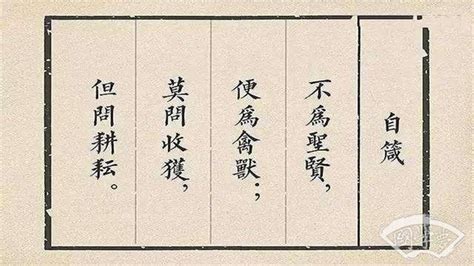 自箴
不為聖賢，
便為禽獸；
莫問收獲，
但問耕耘。